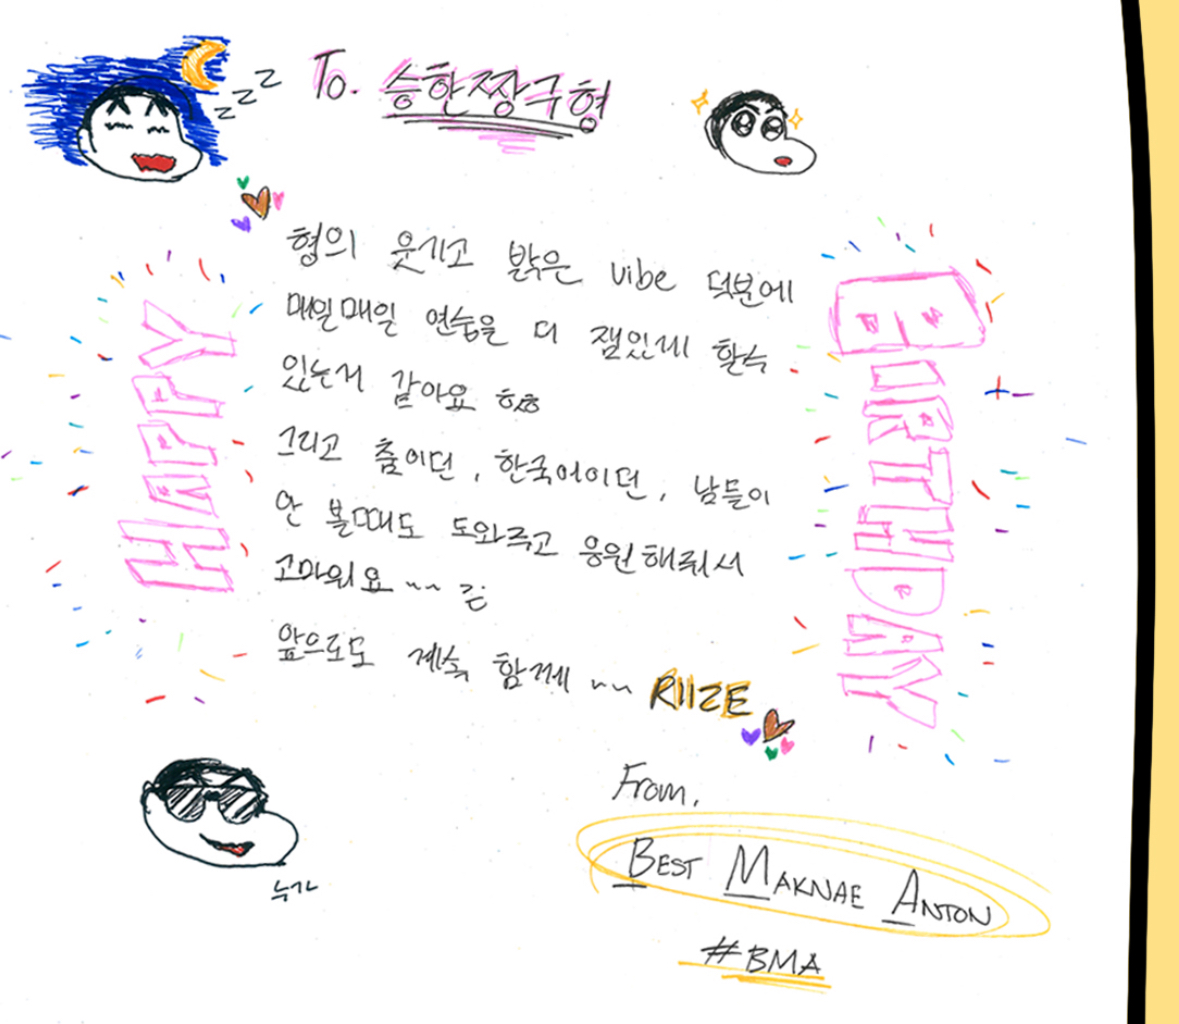 zzz
To. 승한짱구형
형의 웃기고 밝은 vibe 덕분에
매일매일 연습을 더 잼있게 할수
있는거 같아요 ㅎㅎ
그리고 춤이던, 한국어이던, 남들이
안 볼때도 도와주고 응원해줘서
고마워요 ~~
앞으로도 계속 함께 ~~ RIIZE
HAPPY
BIRTHDAY
From,
BEST MAKNAE ANTON
#BMA